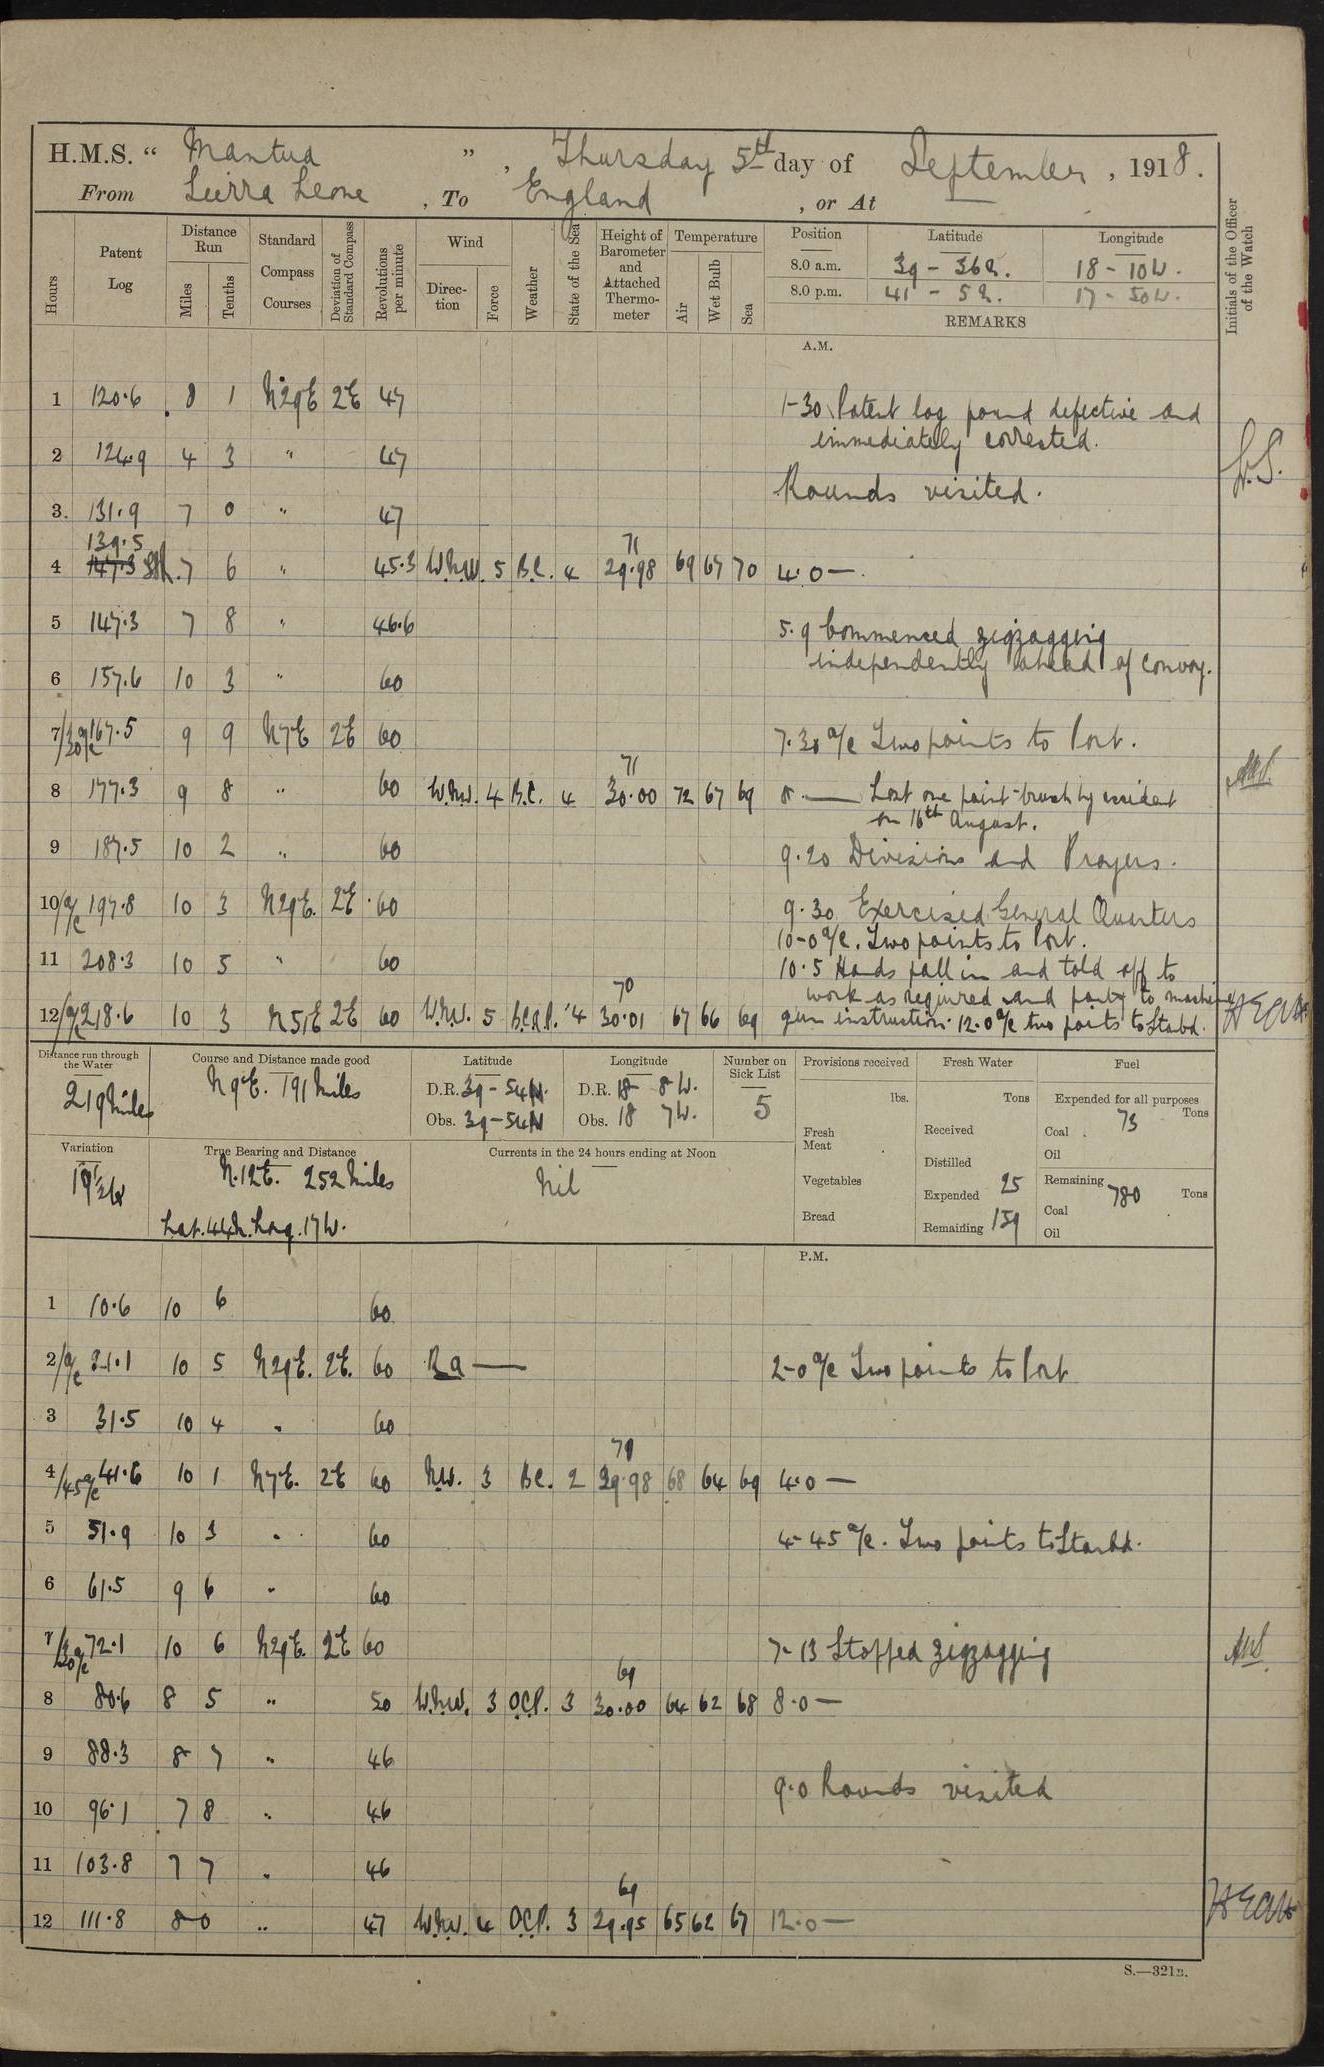 H.M.S. “ Mantua ” , Thursday 5th day of September , 1918.
From Sierra Leone , To England , or At
Hours
Patent Log
Distance Run
Miles
Tenths
Standard Compass Courses
Deviation of Standard Compass
Revolutions per minute
Wind
Direc-tion
Force
Weather
State of the Sea
Height of Barometer and Attached Thermo-meter
Temperature
Air
Wet Bulb
Sea
Position Latitude Longitude
8.0 a.m. 39 - 36 N. 18 - 10 W.
8.0 p.m. 41 - 5 N. 17 - 50 W.
REMARKS
Initials of the Officer of the Watch
A.M.
1 120.6 8 1 N29E 2E 47 1-30 Patent log found defective and
immediately corrected.
2 124.9 4 3 " 47
Rounds visited.
3. 131.9 7 0 " 47
139.5 71
4 147.3 7 6 " 45.3 W.N.W. 5 B.C. 4 29.98 69 67 70 4.0 —
5 147.3 7 8 " 46.6 5.9 Commenced zigzagging
independently ahead of convoy.
6 157.6 10 3 " 60
7/30 a/c 167.5 9 9 N7E 2E 60 7.30 a/c Two points to Port.
71
8 177.3 9 8 " 60 W.N.W. 4 B.C. 4 30.00 72 67 69 8. — Lost one paint-brush by accident
on 16th August.
9 187.5 10 2 " 60 9.20 Divisions and Prayers.
10/a/c 197.8 10 3 N29E. 2E 60 9.30 Exercised General Quarters
10-0 a/c. Two points to Port.
11 208.3 10 5 " 60 10.5 Hands fall in and told off to
70 work as required and party to machine
12/a/c 218.6 10 3 N51E 2E 60 W.N.W. 5 B.C.Q.P. 4 30.01 67 66 69 gun instruction. 12.0 a/c two points to Starbd.
Distance run through the Water
219 Miles
Course and Distance made good
N9E. 191 Miles
Latitude
D.R. 39 - 54 N.
Obs. 39 - 54 N
Longitude
D.R. 18 8 W.
Obs. 18 7 W.
Number on Sick List
5
Provisions received
lbs.
Fresh Meat
Vegetables
Bread
Fresh Water
Tons
Received
Distilled
Expended 25
Remaining 159
Fuel
Expended for all purposes
Coal 73 Tons
Oil
Remaining
Coal 780 Tons
Oil
Variation
19 1/2 W
True Bearing and Distance
N.12E. 252 Miles
Lat. 44 N. Long. 17 W.
Currents in the 24 hours ending at Noon
Nil
P.M.
1 10.6 10 6 60
2/a/c 21.1 10 5 N29E. 2E. 60 2-0 a/c Two points to Port
3 31.5 10 4 " 60
70
4/45 a/c 41.6 10 1 N7E. 2E 60 N.W. 3 B.C. 2 29.98 68 64 69 4.0 —
5 51.9 10 3 " 60 4-45 a/c. Two points to Starbd.
6 61.5 9 6 " 60
7/30 a/c 72.1 10 6 N29E. 2E 60 7-13 Stopped zigzagging
69
8 80.6 8 5 " 50 W.N.W. 3 O.C.P. 3 30.00 64 62 68 8.0 —
9 88.3 8 7 " 46
9.0 Rounds visited
10 96.1 7 8 " 46
11 103.8 7 7 " 46
69
12 111.8 8 0 " 47 W.N.W. 4 O.C.P. 3 29.95 65 62 67 12.0 —
S.—321B.